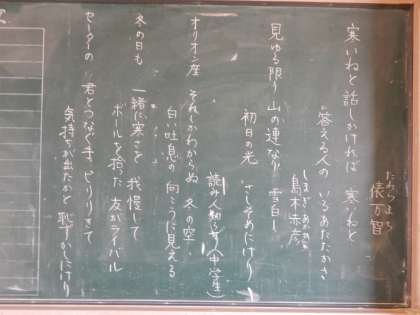 寒いねと話しかければ 寒いねと
答える人の いるあたたかさ
たわらまち
俵万智
見ゆる限り 山の連なり 雪白し
初日の光 さしそめにけり
しまぎあかひこ
島木赤彦
オリオン座 それしかわからぬ 冬の空
白い吐息の 向こうに見える
読み人知らず(中学生)
冬の日も 一緒に寒さを 我慢して
ボールを拾った 友がライバル
セーターの 君とつなぐ手 ビリリきて
気持ちが出たかと 恥ずかしにけり